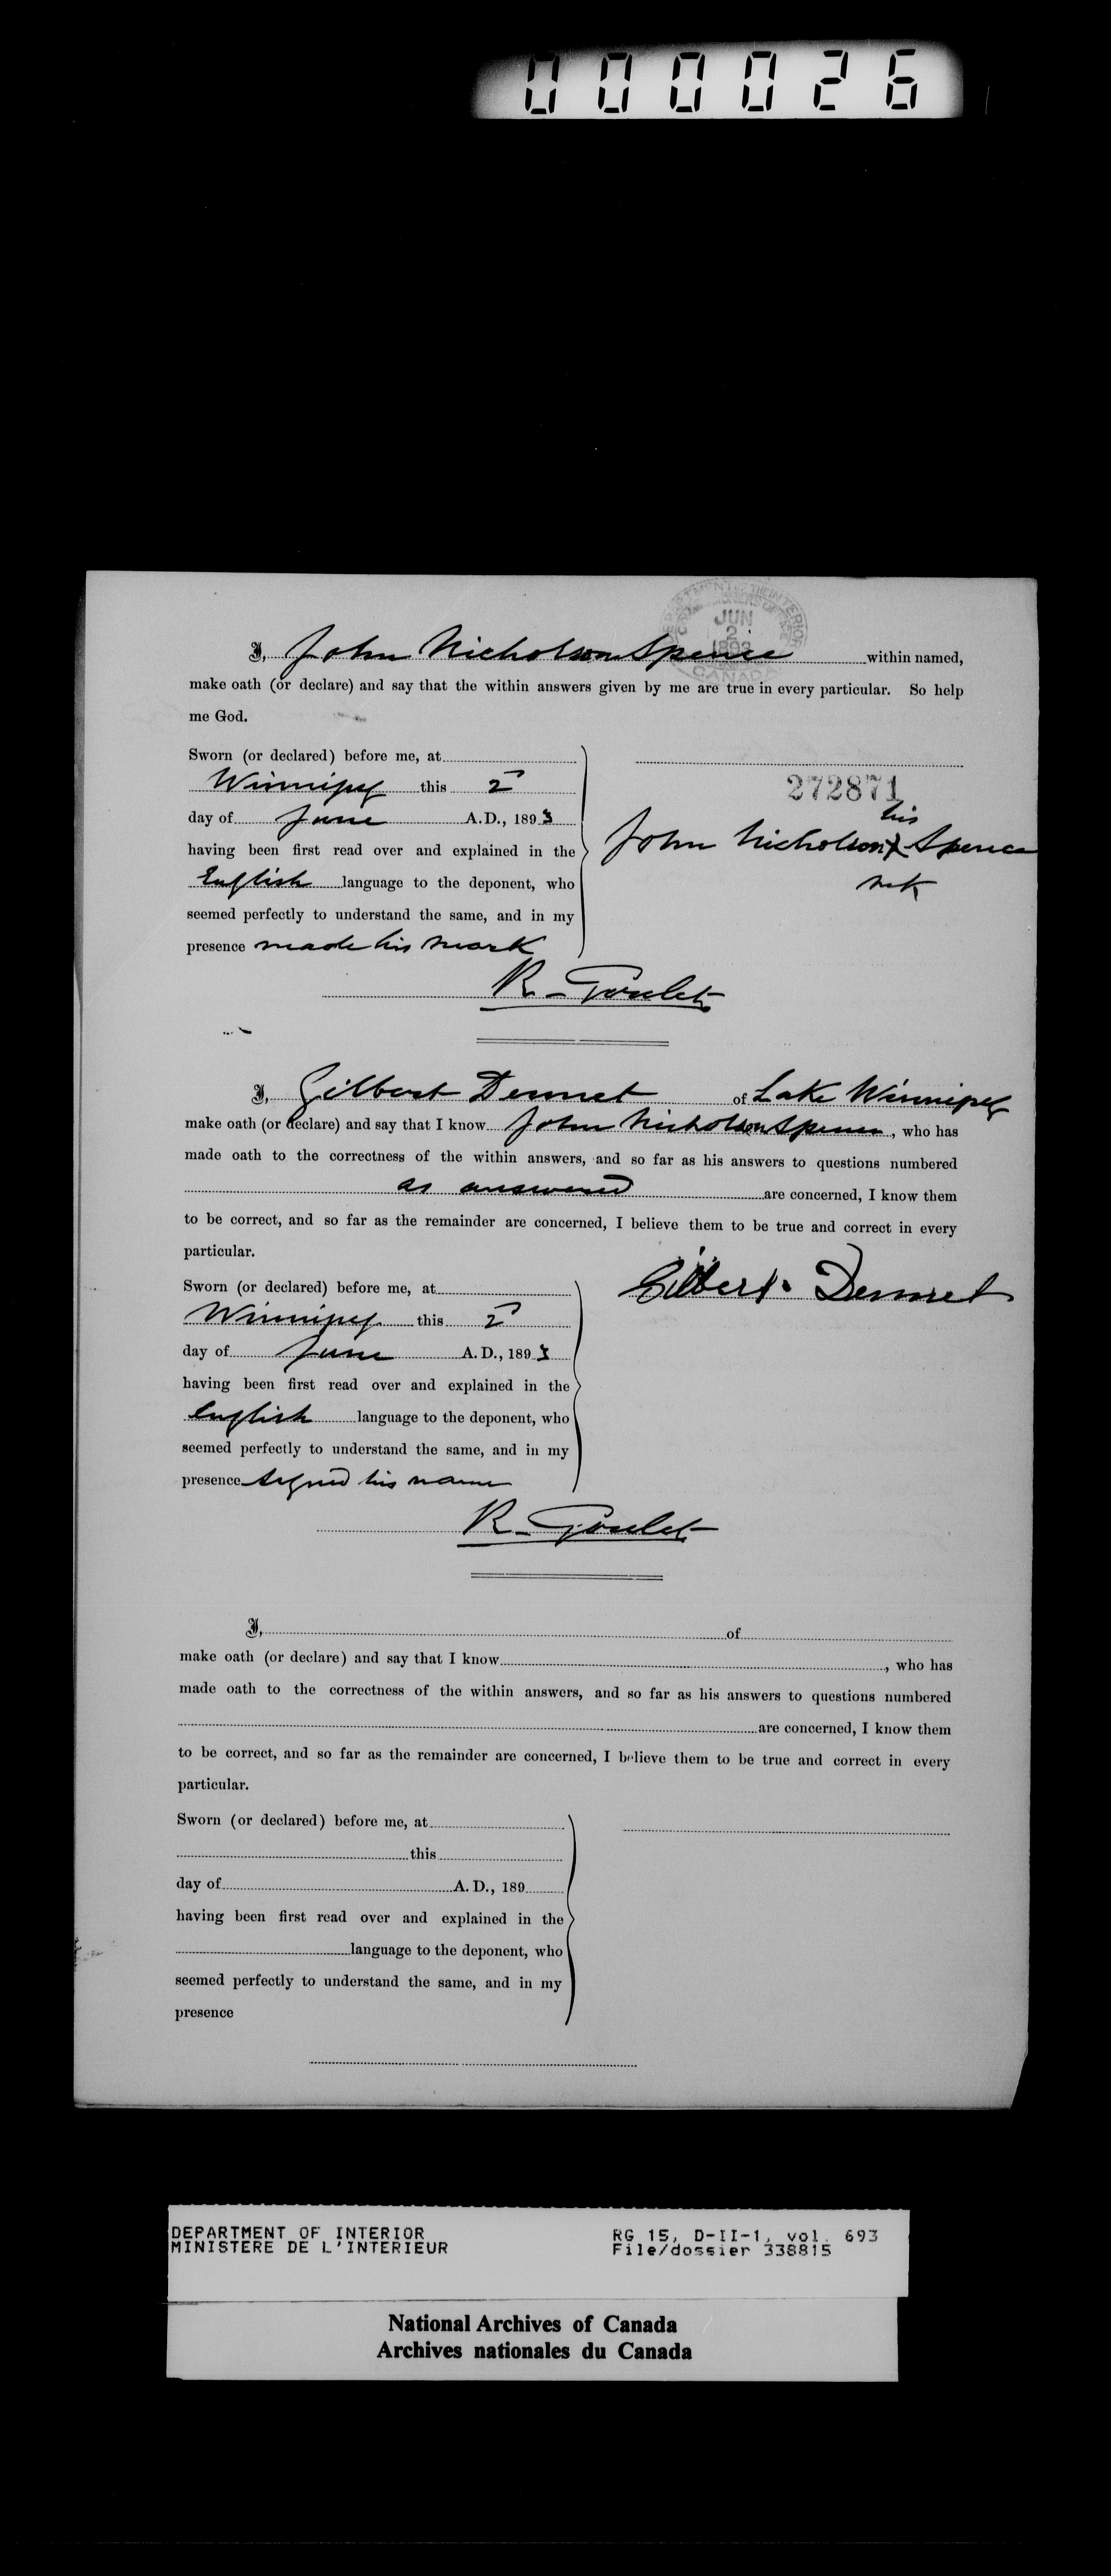 000026
DEPARTMENT OF THE INTERIOR
JUN
2
1893
CANADA
I, John Nicholson Spence within named,
make oath (or declare) and say that the within answers given by me are true in every particular. So help
me God.
Sworn (or declared) before me, at
Winnipeg this 2
day of June A.D., 1893
having been first read over and explained in the
English language to the deponent, who
seemed perfectly to understand the same, and in my
presence made his mark
272871
his
John Nicholson X Spence
mk
R. Goulet
I, Gilbert Dennet of Lake Winnipeg
make oath (or declare) and say that I know John Nicholson Spence, who has
made oath to the correctness of the within answers, and so far as his answers to questions numbered
as answered are concerned, I know them
to be correct, and so far as the remainder are concerned, I believe them to be true and correct in every
particular.
Sworn (or declared) before me, at
Winnipeg this 2
day of June A.D., 1893
having been first read over and explained in the
English language to the deponent, who
seemed perfectly to understand the same, and in my
presence signed his name
Gilbert Dennet
R. Goulet
I, of
make oath (or declare) and say that I know , who has
made oath to the correctness of the within answers, and so far as his answers to questions numbered
are concerned, I know them
to be correct, and so far as the remainder are concerned, I believe them to be true and correct in every
particular.
Sworn (or declared) before me, at
this
day of A.D., 189
having been first read over and explained in the
language to the deponent, who
seemed perfectly to understand the same, and in my
presence
DEPARTMENT OF INTERIOR RG 15, D-II-1, vol. 693
MINISTERE DE L'INTERIEUR File/dossier 338815
National Archives of Canada
Archives nationales du Canada